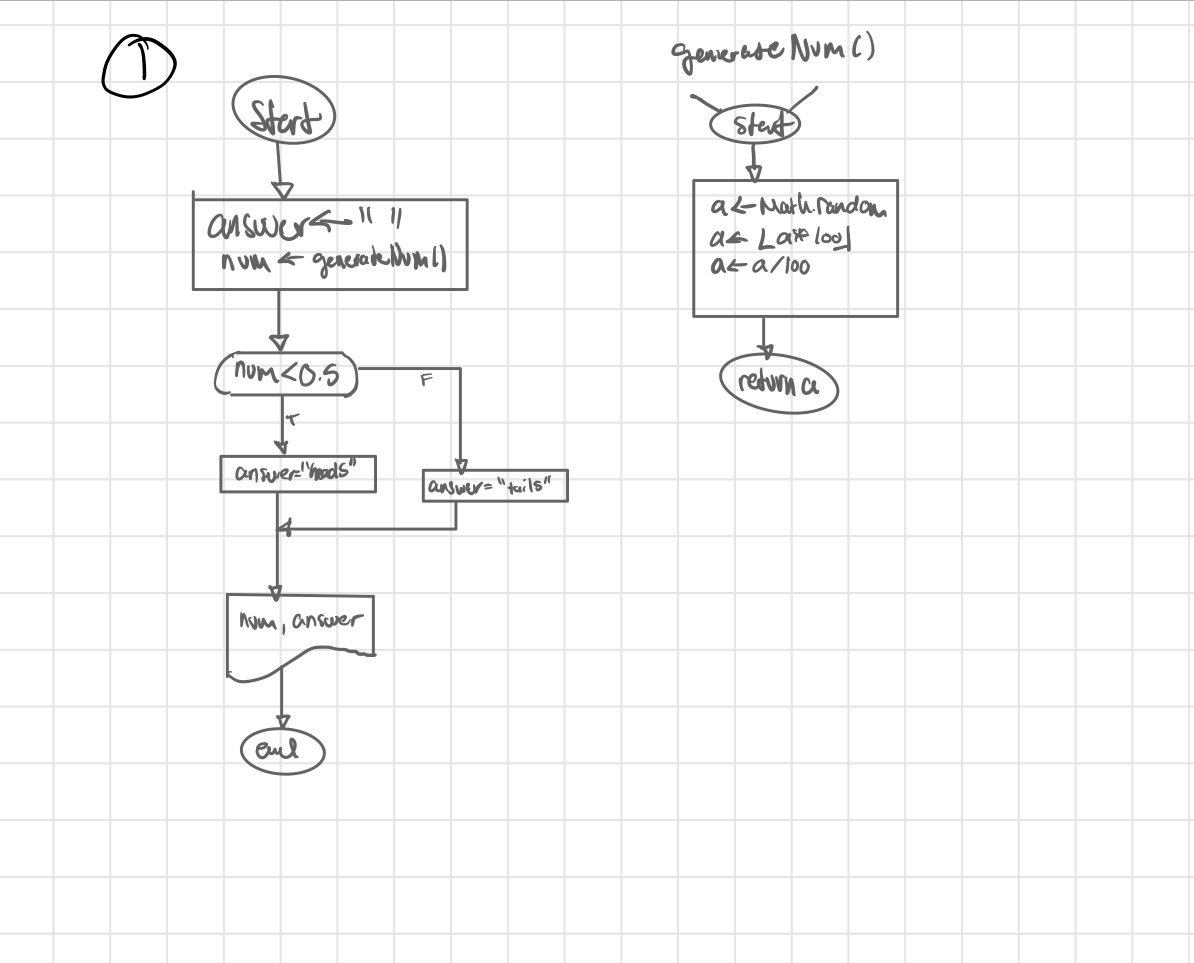 1
Start
answer ← " "
num ← generateNum()
num < 0.5
F
T
answer="heads"
answer="tails"
num, answer
end
generateNum()
start
a ← Math.random
a ← ⌊a*100⌋
a ← a/100
return a